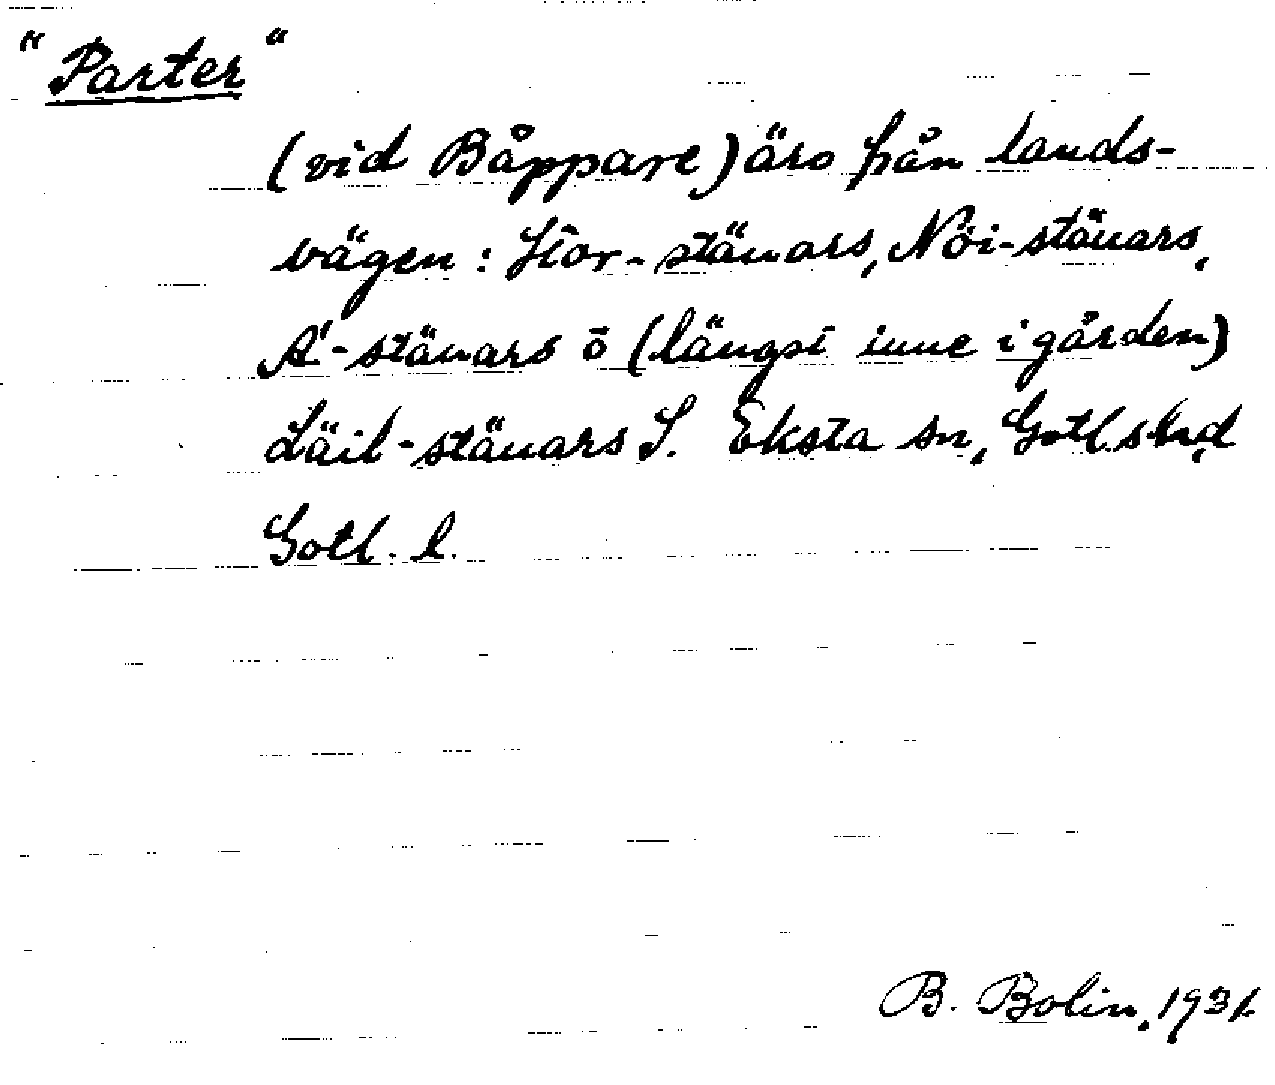 "Parter"
(vid Båppare) äro från lands-
vägen: Stor-stäuars, Nöi-stäuars,
Á-stäuars ö (längst inne i gården)
Läil-stäuars S. Eksta sn, Gotl. s. hd
Gotl. l.
B. Bolin, 1931.